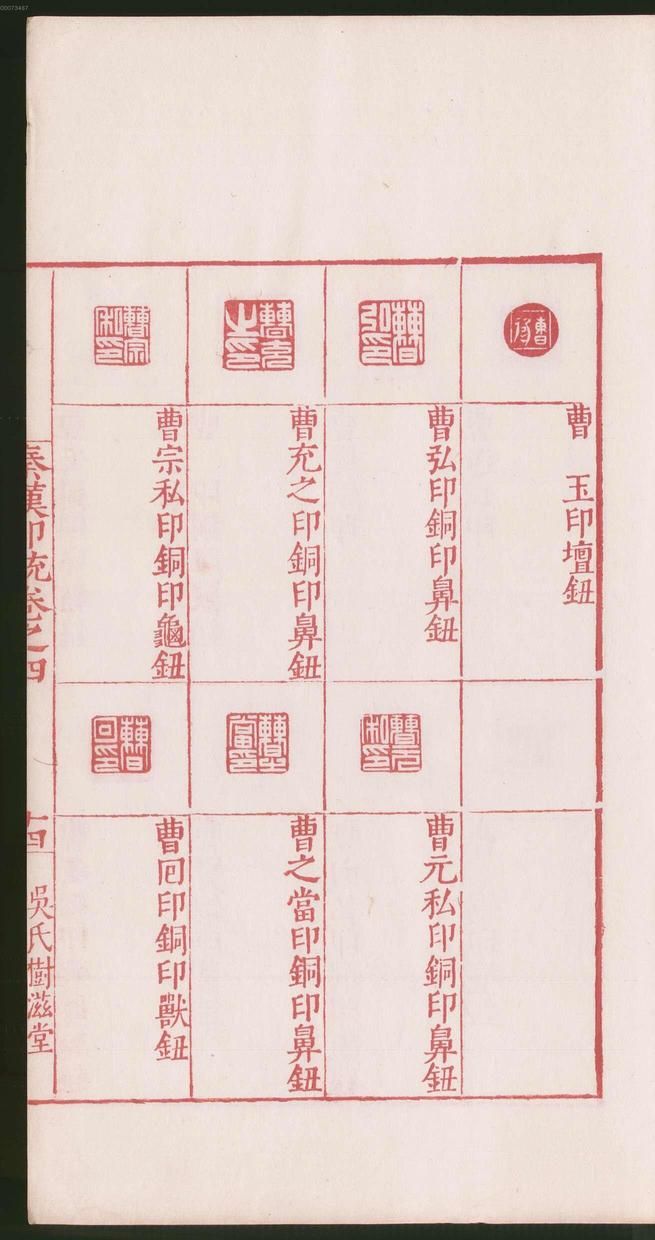 00073487
曹　玉印壇鈕
曹弘印銅印鼻鈕
曹元私印銅印鼻鈕
曹充之印銅印鼻鈕
曹之當印銅印鼻鈕
曹宗私印銅印龜鈕
曹回印銅印獸鈕
秦漢印統卷之四
十四
吳氏樹滋堂